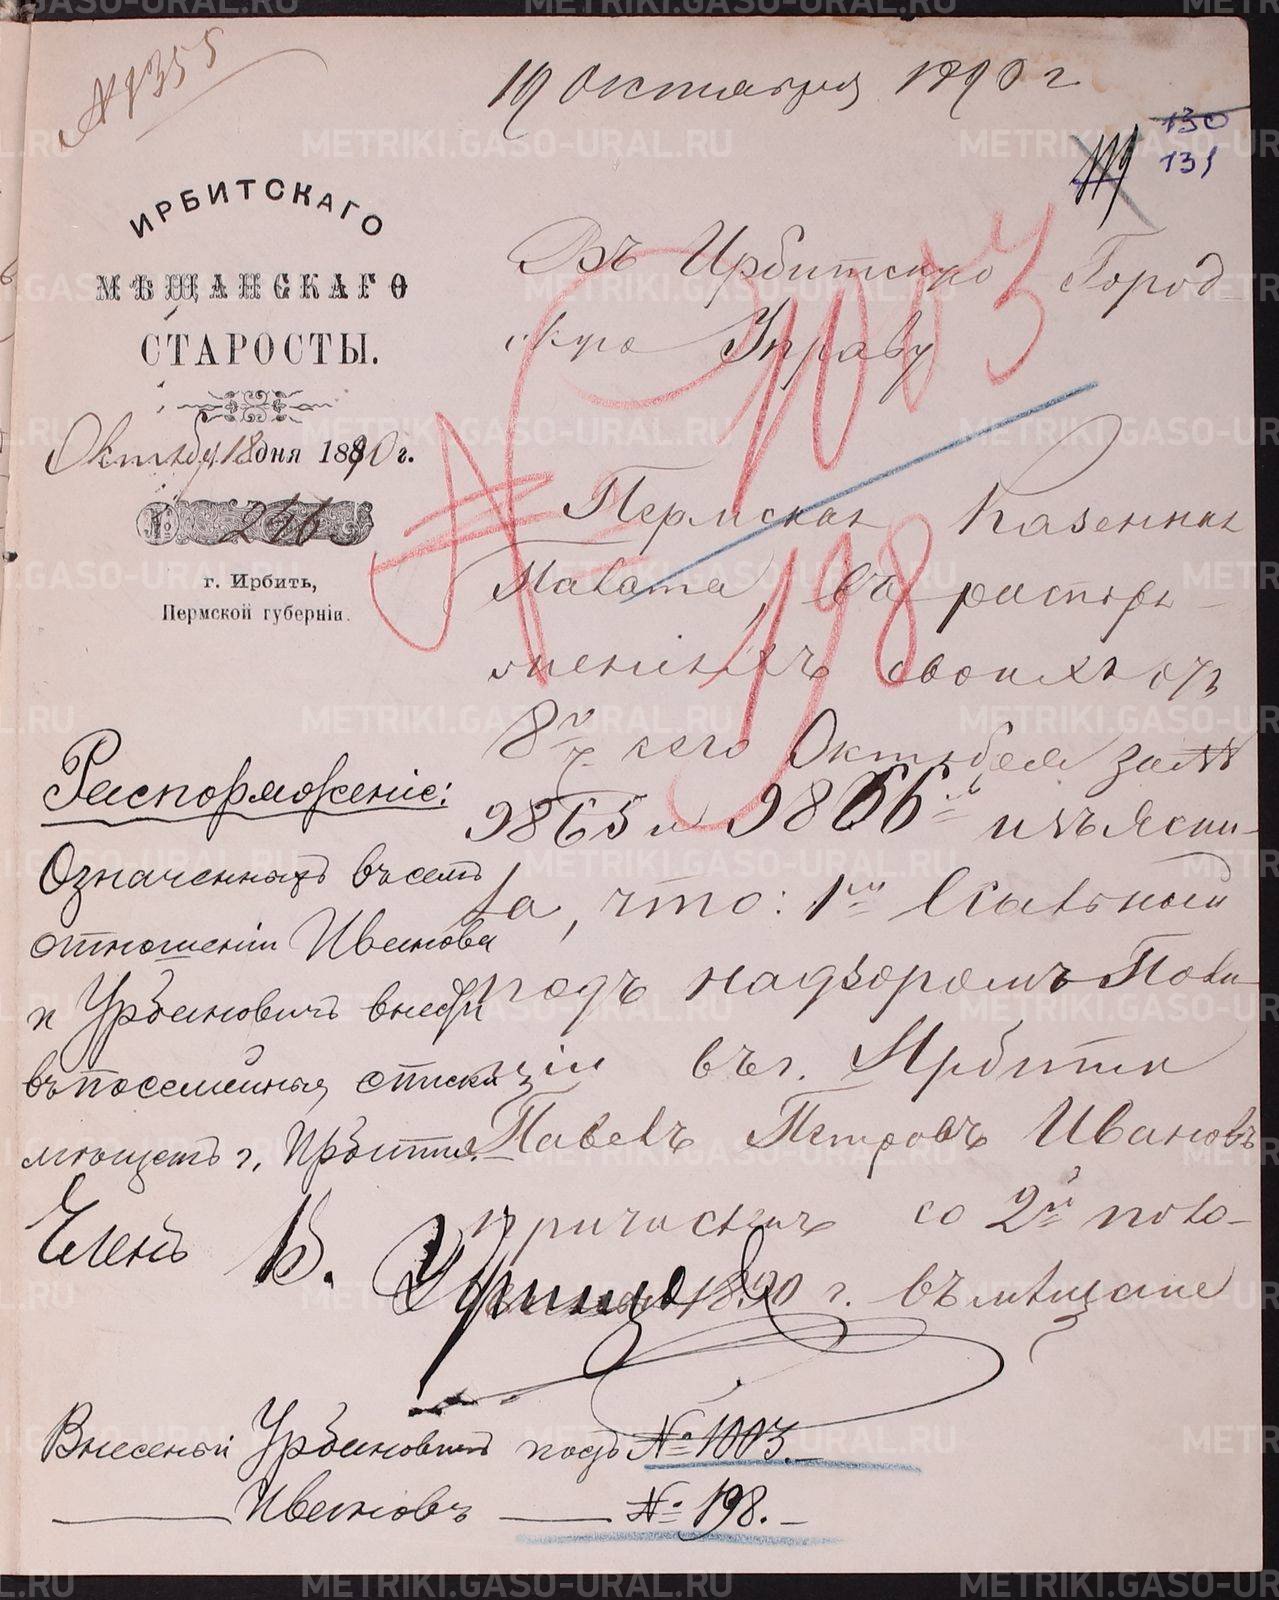 № 1355
19 Октября 1890 г
130
131
119
ИРБИТСКАГО
МѢЩАНСКАГО
СТАРОСТЫ.
Октября 18 дня 1890 г.
№ 246
г. Ирбить,
Пермской губерніи.
Въ Ирбитскую Город
скую Управу
№ 1003
198
Пермская Казенная
Палата, въ распоря-
женіяхъ своихъ отъ
8го сего Октября за №№
9865 и 9866 изъясни-
ла, что: 1й Ссыльный
подъ надзоромъ Поли-
ціи въ г. Ирбити
Павелъ Петровъ Ивановъ
причисленъ со 2й поло-
1890 г. въ мѣщане
Распоряженіе:
Означенныхъ въ семъ
отношеніи Иванова
и Урбановичъ внести
въ посемейныя списки
мѣщанъ г. Ирбити.
Членъ В.
Внесены Урбановичъ подъ № 1003.–
Ивановъ — № 198.–
METRIKI.GASO-URAL.RU